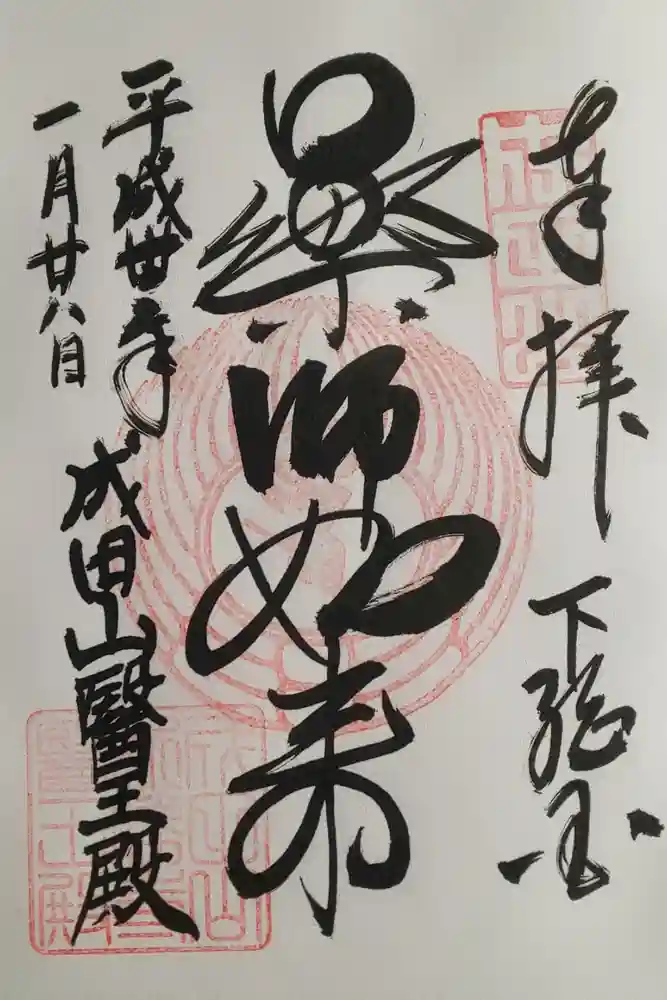 奉拝　下総国
成田山
薬師如来
平成丗年
一月廿八日
成田山醫王殿